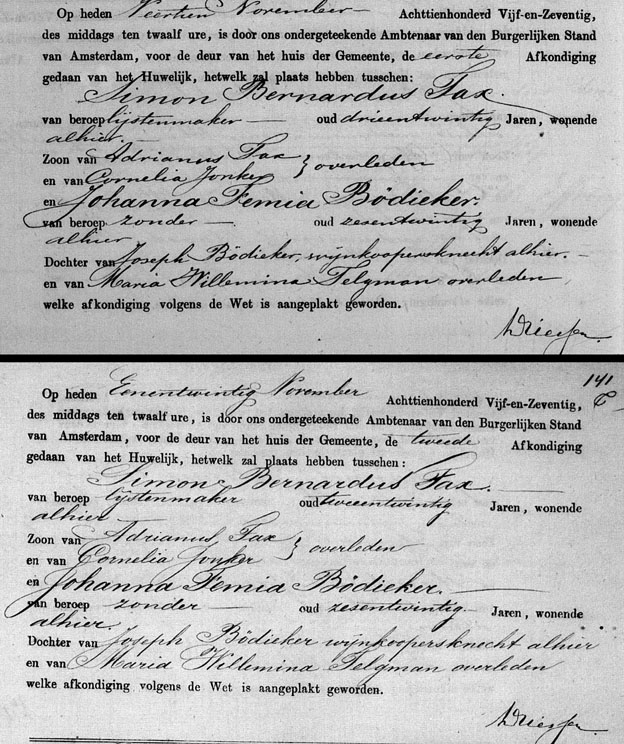 Op heden Veertien November Achttienhonderd Vijf-en-Zeventig,
des middags ten twaalf ure, is door ons ondergeteekende Ambtenaar van den Burgerlijken Stand
van Amsterdam, voor de deur van het huis der Gemeente, de eerste Afkondiging
gedaan van het Huwelijk, hetwelk zal plaats hebben tusschen:
Simon Bernardus Fax.
van beroep lijstenmaker oud drieentwintig Jaren, wonende
alhier.
Zoon van Adrianus Fax
en van Cornelia Jonker } overleden
en Johanna Femia Bödieker.
van beroep zonder oud zesentwintig Jaren, wonende
alhier
Dochter van Joseph Bödieker, wijnkoopersknecht alhier.
en van Maria Willemina Telgman overleden
welke afkondiging volgens de Wet is aangeplakt geworden.
141
Op heden Eenentwintig November Achttienhonderd Vijf-en-Zeventig,
des middags ten twaalf ure, is door ons ondergeteekende Ambtenaar van den Burgerlijken Stand
van Amsterdam, voor de deur van het huis der Gemeente, de tweede Afkondiging
gedaan van het Huwelijk, hetwelk zal plaats hebben tusschen:
Simon Bernardus Fax.
van beroep lijstenmaker oud tweeentwintig Jaren, wonende
alhier
Zoon van Adrianus Fax
en van Cornelia Jonker } overleden
en Johanna Femia Bödieker.
van beroep zonder oud zesentwintig Jaren, wonende
alhier.
Dochter van Joseph Bödieker wijnkoopersknecht alhier
en van Maria Willemina Telgman overleden
welke afkondiging volgens de Wet is aangeplakt geworden.